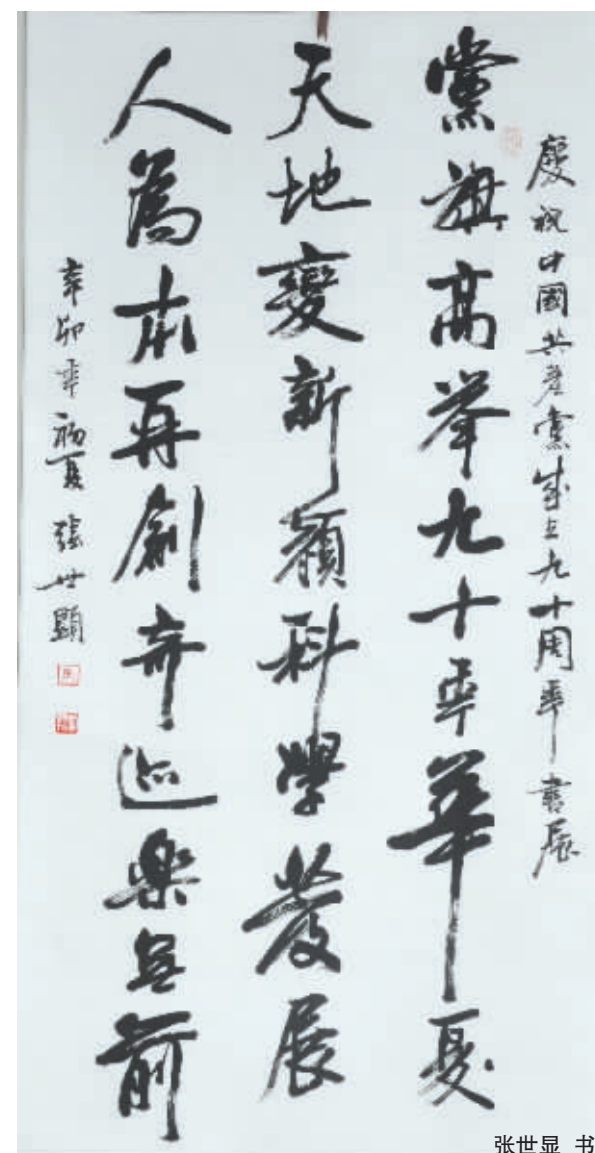 慶祝中國共產黨成立九十周年書展
黨旗高举九十年華夏
天地變新顏科學發展
人為本再創奇迹樂無前
辛卯年初夏 張世顯
张世显 书